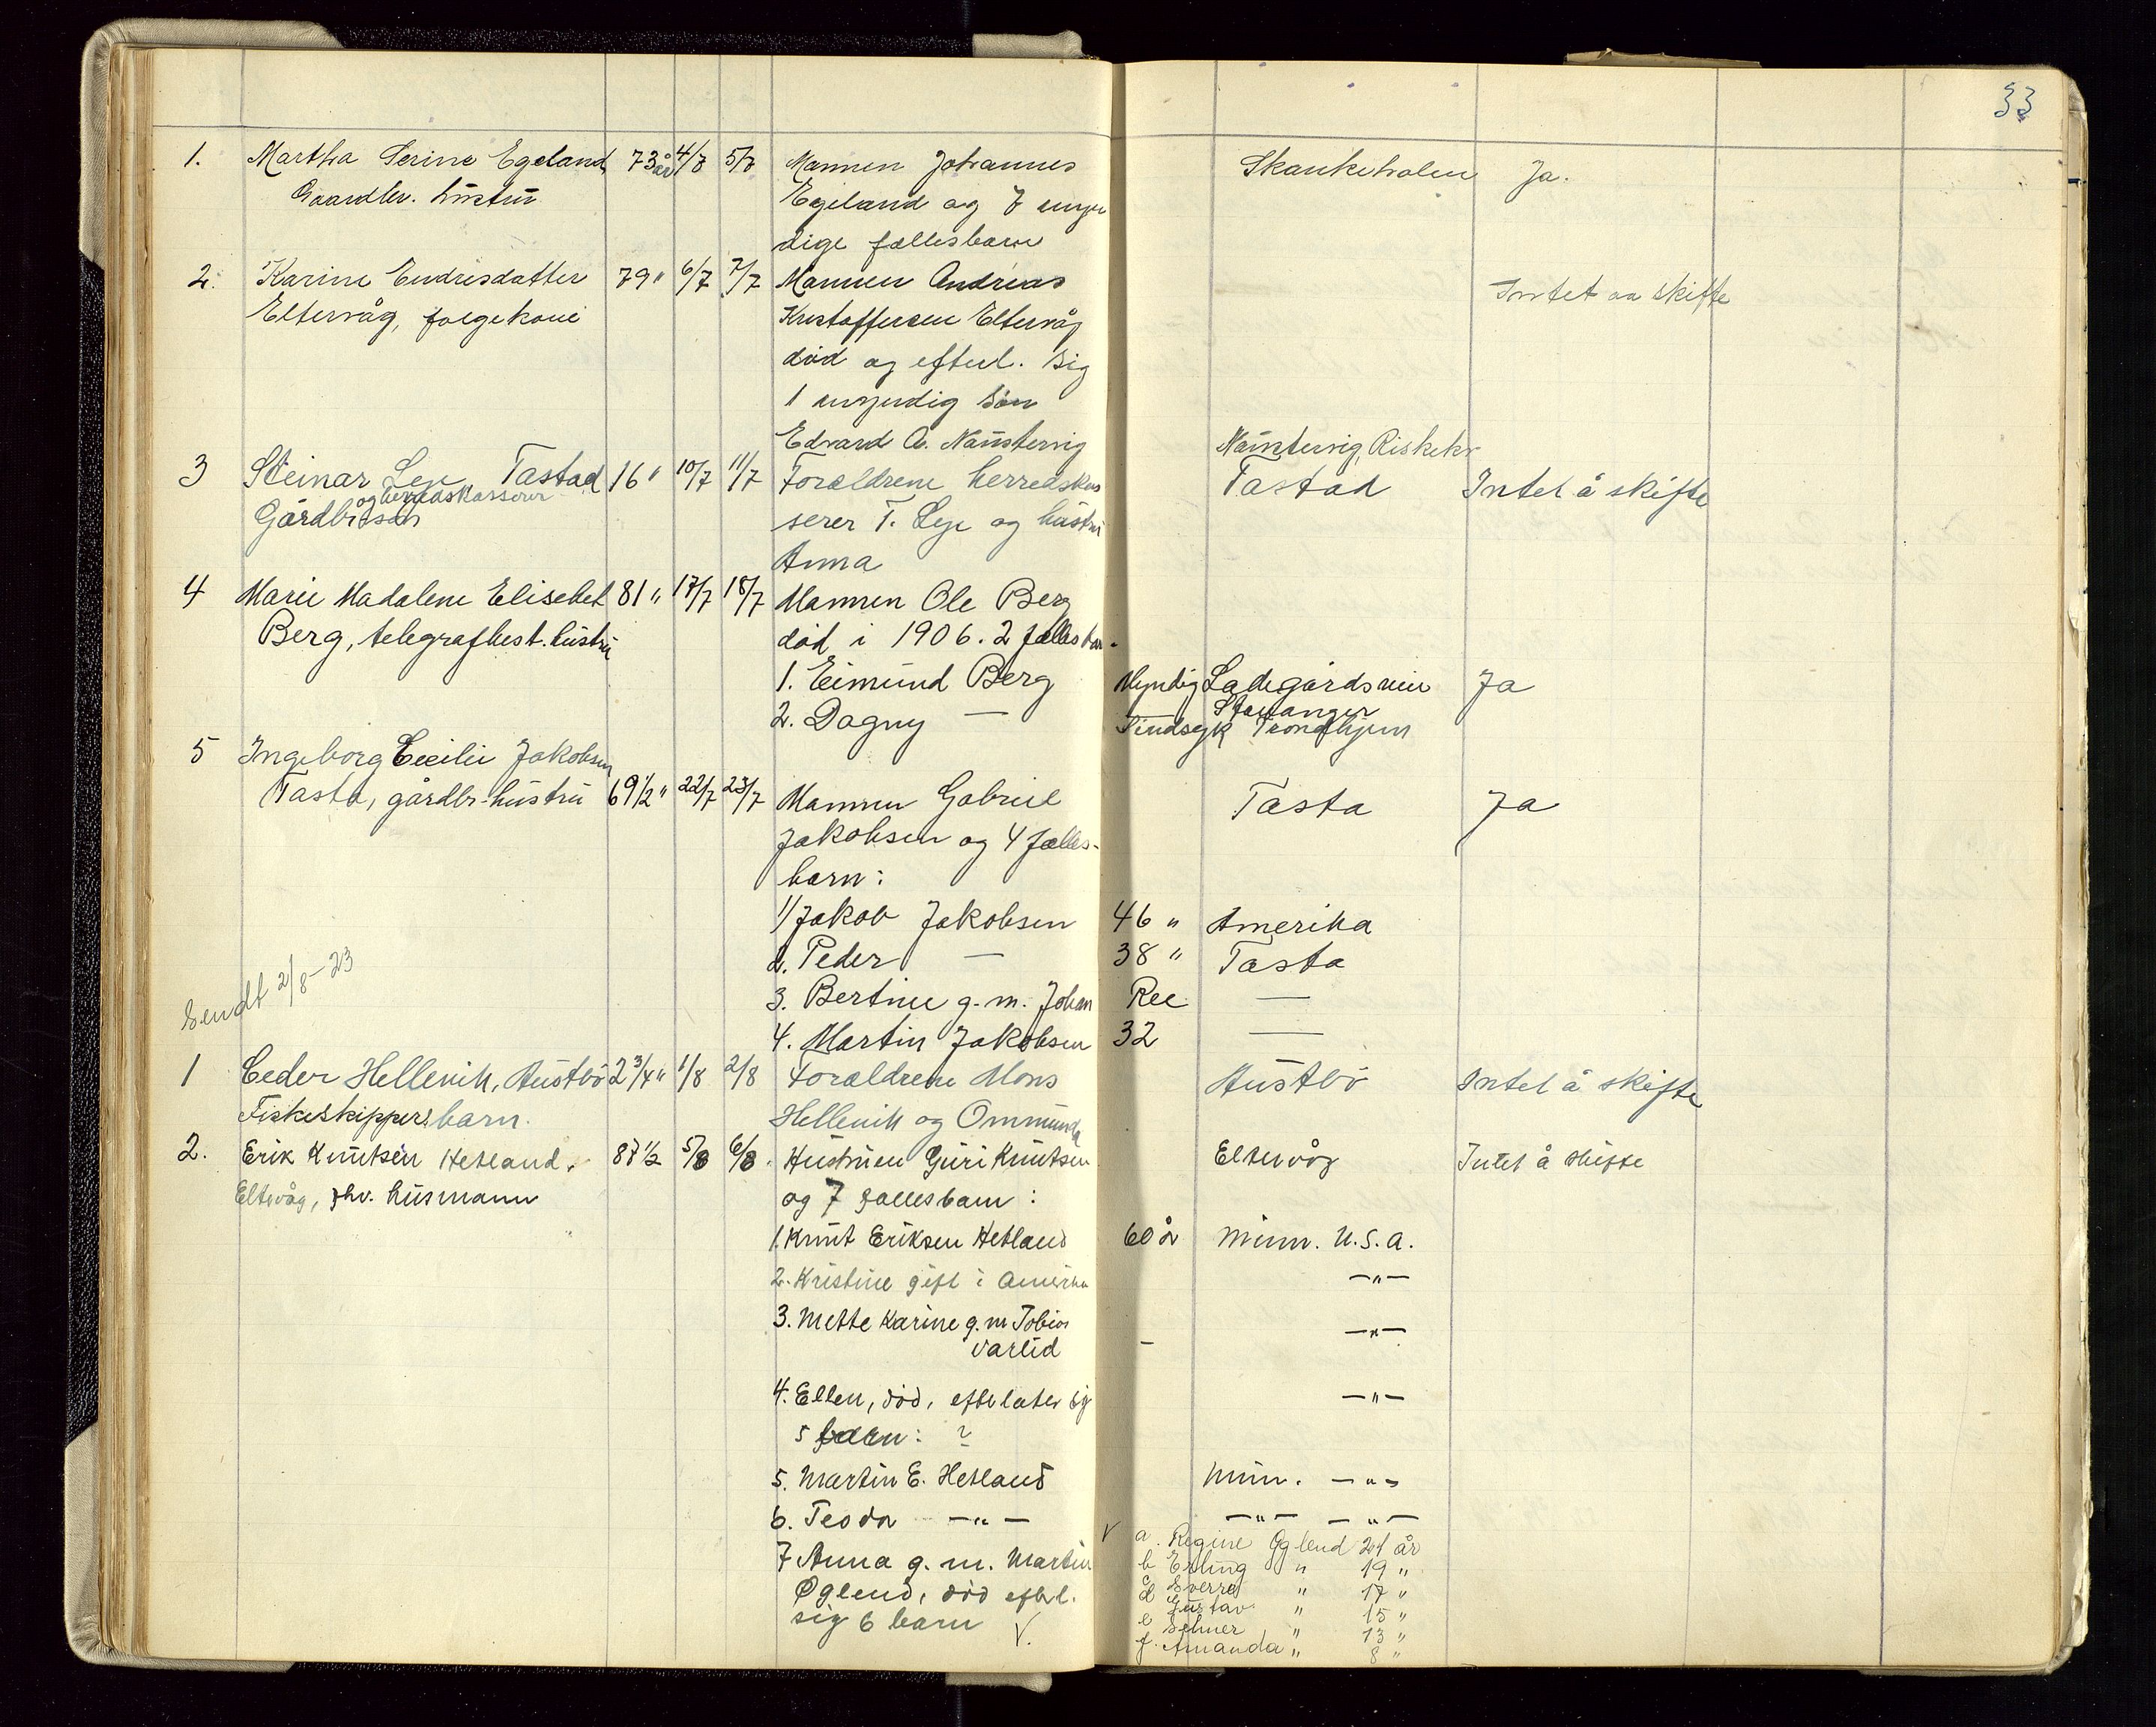 33
1. Martha Serine Egeland 73 år 4/7 5/7 Mannen Johannes Skankeholen Ja.
Gaardbr. hustru Egeland og 7 umyn
dige fællesbarn
2. Karine Endresdatter 79 " 6/7 7/7 Mannen Andreas Intet aa skifte
Eltervåg, folgekone Kristoffersen Eltervåg
död og efterl. sig
1 umyndig sön
Edvard A. Naustervig Naustervig, Riskekv
3 Steinar Leye, Tastad 16 " 10/7 11/7 Foreldrene herredskas Tastad Intet å skifte
og herredskasserer
Gårdbr sön serer T. Leye og hustru
Anna
4 Marie Madalene Elisebet 81 " 17/7 18/7 Mannen Ole Berg
Berg, telegrafbest. hustru död i 1906. 2 fellesbarn.
1. Eimund Berg Myndig Ladegårdsveien Ja
Stavanger
2. Dagny — Sindsyk Trondhjem
5 Ingeborg Cecilie Jakobsen
Tasta, gårdbr-hustru 69 1/2 " 22/7 23/7 Mannen Gabriel Tasta Ja
Jakobsen og 4 felles-
barn:
1/ Jakob Jakobsen 46 " Amerika
2. Peder — 38 " Tasta
Sendt 2/8-23
3. Bertine g. m. Johan Ree —
4. Martin Jakobsen 32 —
1 Peder Hellevik, Austbö 2 3/4 " 1/8 2/8 Foreldrene Mons Austbö Intet å skifte
Fiskeskippers barn. Hellevik og Ommunda
2. Erik Knutsen Hetland, 87 1/2 5/8 6/8 Hustruen Guri Knutsen Eltervåg Intet å skifte
Eltevåg, fhv. husmann og 7 fællesbarn:
1. Knut Eriksen Hetland 60 år Minn. U.S.A.
2. Kristine gift i Amerika —"—
3. Mette Karine g. m Tobias —"—
Varlid -
4. Ellen, död, efterlater sig —"—
5 barn: ?
5. Martin E. Hetland Minn. —"—
6. Teoda —"— —"— —"—
V a. Regine Øglend 21 år
7 Anna g. m. Martin b Erling " 19 "
c Sverre " 17 "
Øglend, död efterl. d Gustav " 15 "
sig 6 barn V. e Selmer " 13 "
f. Amanda " 8 "